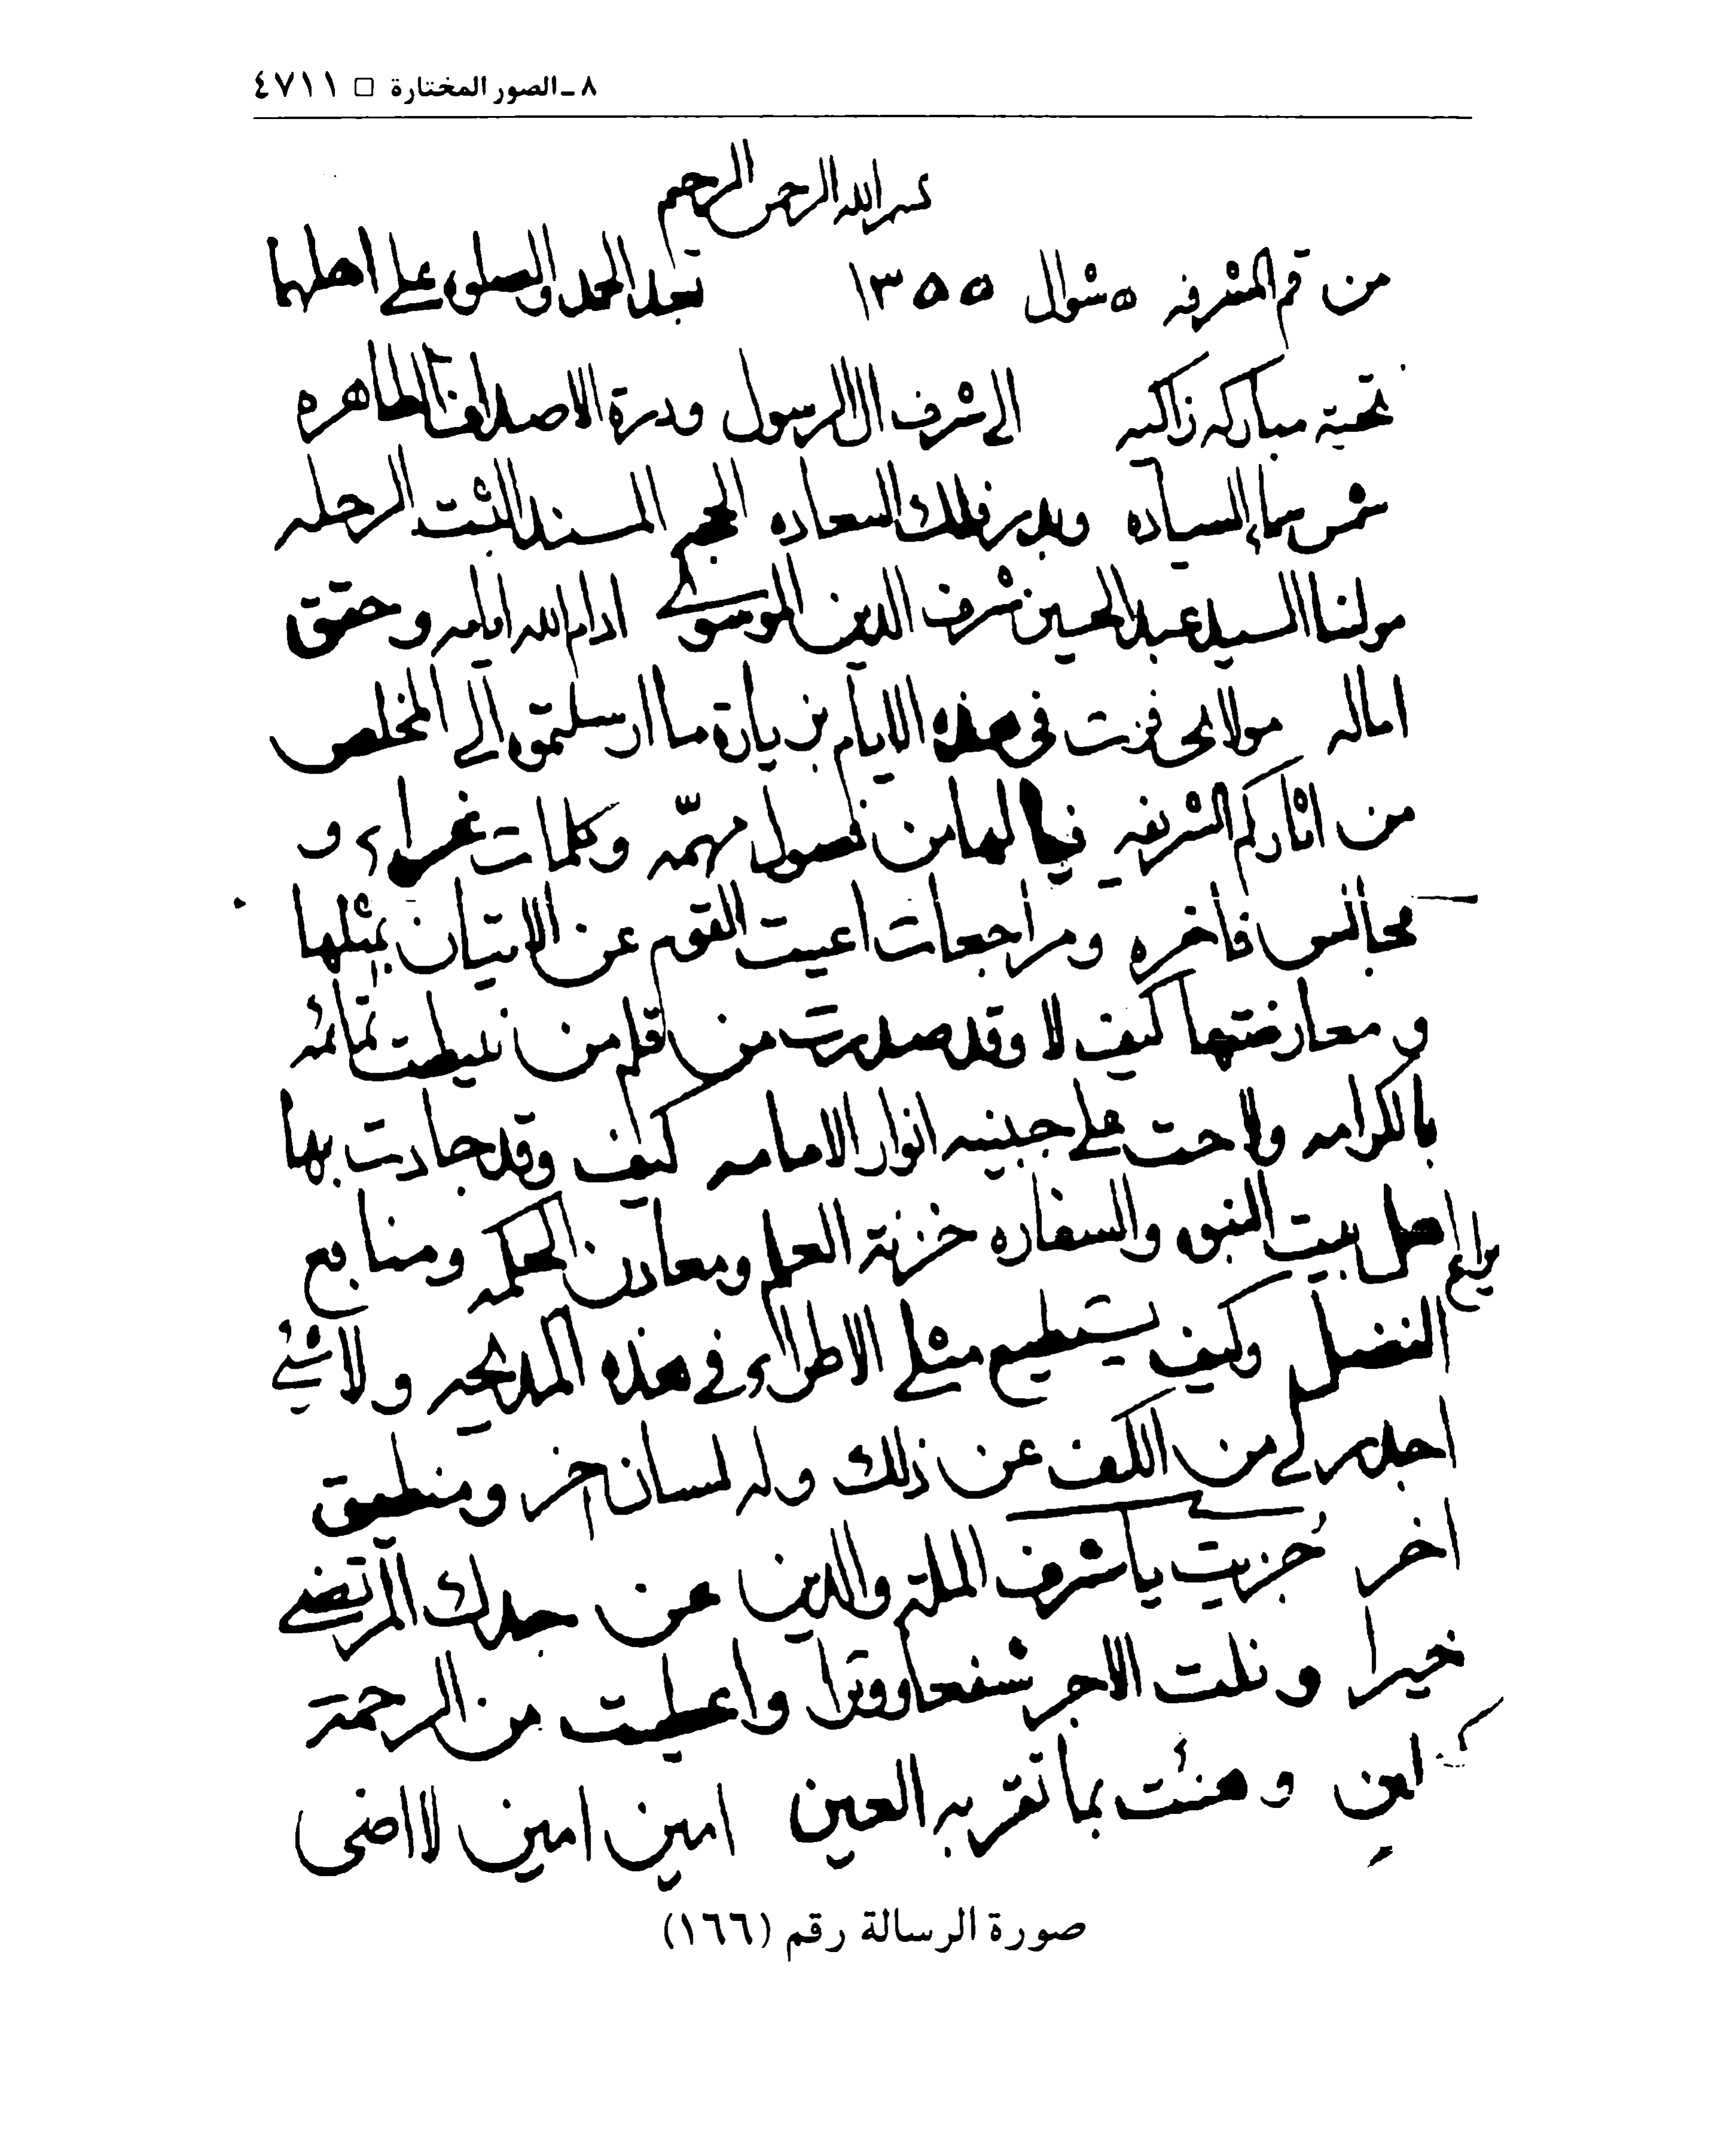 ٨ـ الصور المختارة □ ٤٧١١
بسم الله الرحمن الرحيم
من قم المشرفه ٥ شوال ١٣٥٥ نسجد الحمد والصلوة على اهلها
تحية مباركه زاكيه الى شرف ال الرسول ودرة الاصداف الطاهره
شمس سماء السياده وبدر فلك السعاده الحجة المسند الثبت الرحله
مولنا السيد عبد الحسين شرف الدين الموسوى ادام الله ايامه وحقق
اماله مولاى فزت فى هذه الايام بزيارة ما ارسلتموه الى المخلص
من اثاركم الشريفه من فصول مهمّه وكلمات غراء و
مجالس فاخره ومراجعات اعيت القوم عن الاتيان بمثلها
و معارضتها كيف لا وقد صدرت من قلم من نيطت تمائمه
بالكرامه ولاحت على جبينه انوار الامامه كيف وقد جادت بها
يراع اهل بيت النبى والسفاره خزنة العلم ومعادن الحكمه ومنابع
الفضل وكيف يستطيع مثلى الاطراء فى هذه المديحه ولا شئ
اجدر لى من الكف عن ذلك وله لسان اخر ومنطيق
اخر جُزيت يا شرف الملة والدين عن جدك المرتضى
خيرا ونلت الاجر شفعا ووترا واعطيت من الرحمة
كفلين وهنئت بما تقر به العين امين امين لا ارضى
صورة الرسالة رقم (١٦٦)